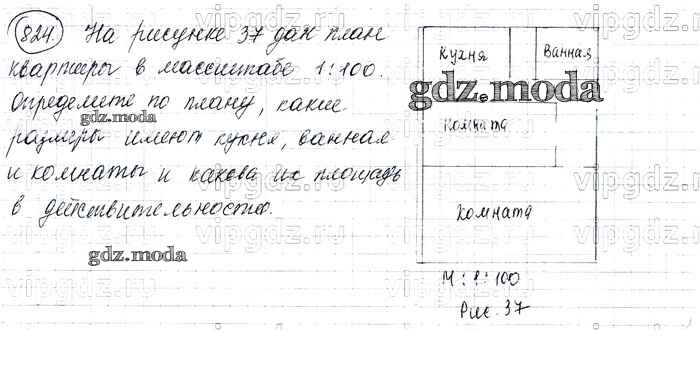 824. На рисунке 37 дан план
квартиры в масштабе 1:100.
Определите по плану, какие
gdz.moda
размеры имеют кухня, ванная
и комнаты и какова их площадь
в действительности.
gdz.moda
Кухня
Ванная
gdz.moda
Комната
Комната
М : 1 : 100
Рис. 37
vipgdz.ru